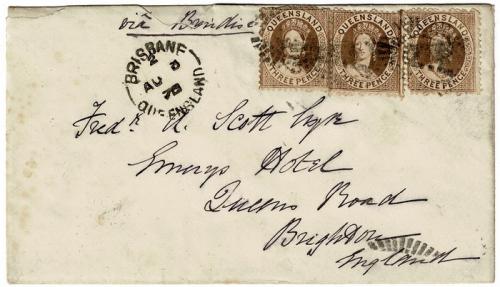 via Brindisi
QUEENSLAND
THREE PENCE
QUEENSLAND
THREE PENCE
QUEENSLAND
THREE PENCE
BRISBANE
AU
78
QUEENSLAND
Fredk. A. Scott Esqre
Emerys Hotel
Queens Road
Brighton
England